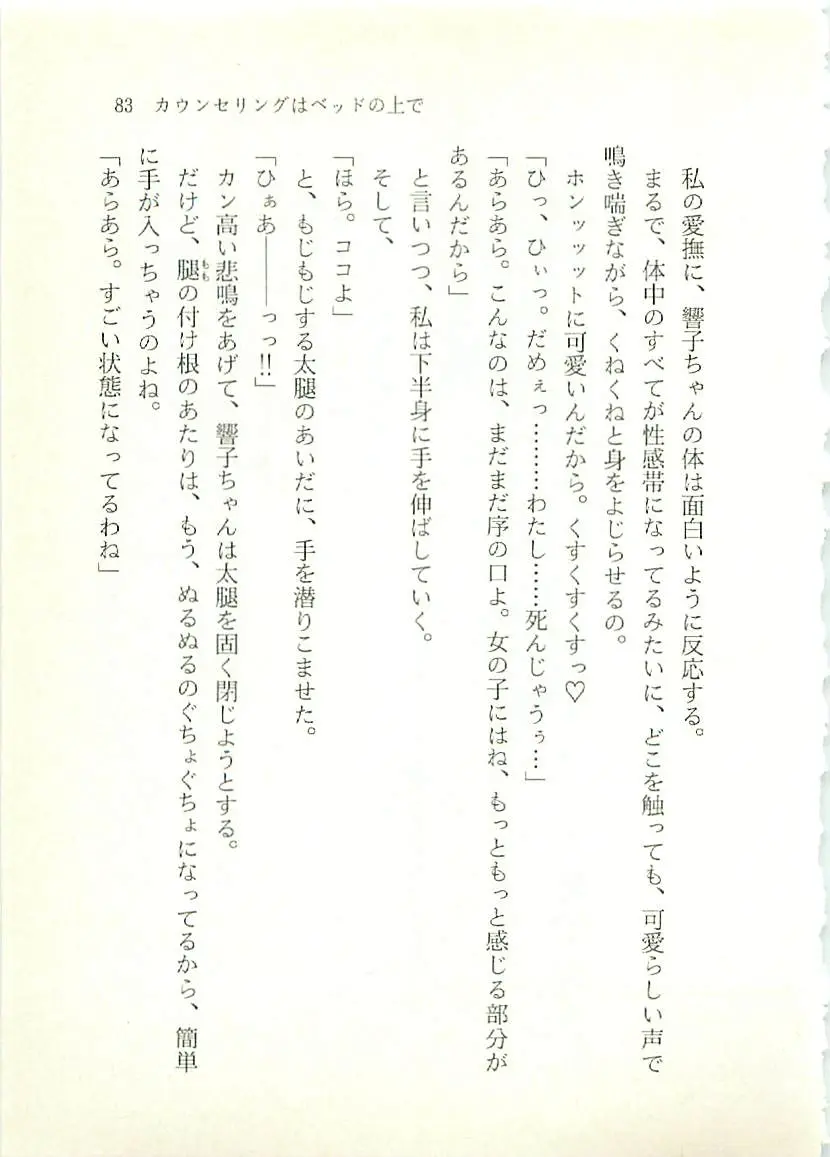 83 カウンセリングはベッドの上で
私の愛撫に、響子ちゃんの体は面白いように反応する。
まるで、体中のすべてが性感帯になってるみたいに、どこを触っても、可愛らしい声で
鳴き喘ぎながら、くねくねと身をよじらせるの。
ホンッッットに可愛いんだから。くすくすくすっ♡
「ひっ、ひぃっ。だめぇっ………わたし……死んじゃうぅ…」
「あらあら。こんなのは、まだまだ序の口よ。女の子にはね、もっともっと感じる部分が
あるんだから」
と言いつつ、私は下半身に手を伸ばしていく。
そして、
「ほら。ココよ」
と、もじもじする太腿のあいだに、手を潜りこませた。
「ひぁあ――っっ!!」
カン高い悲鳴をあげて、響子ちゃんは太腿を固く閉じようとする。
だけど、腿ももの付け根のあたりは、もう、ぬるぬるのぐちょぐちょになってるから、簡単
に手が入っちゃうのよね。
「あらあら。すごい状態になってるわね」